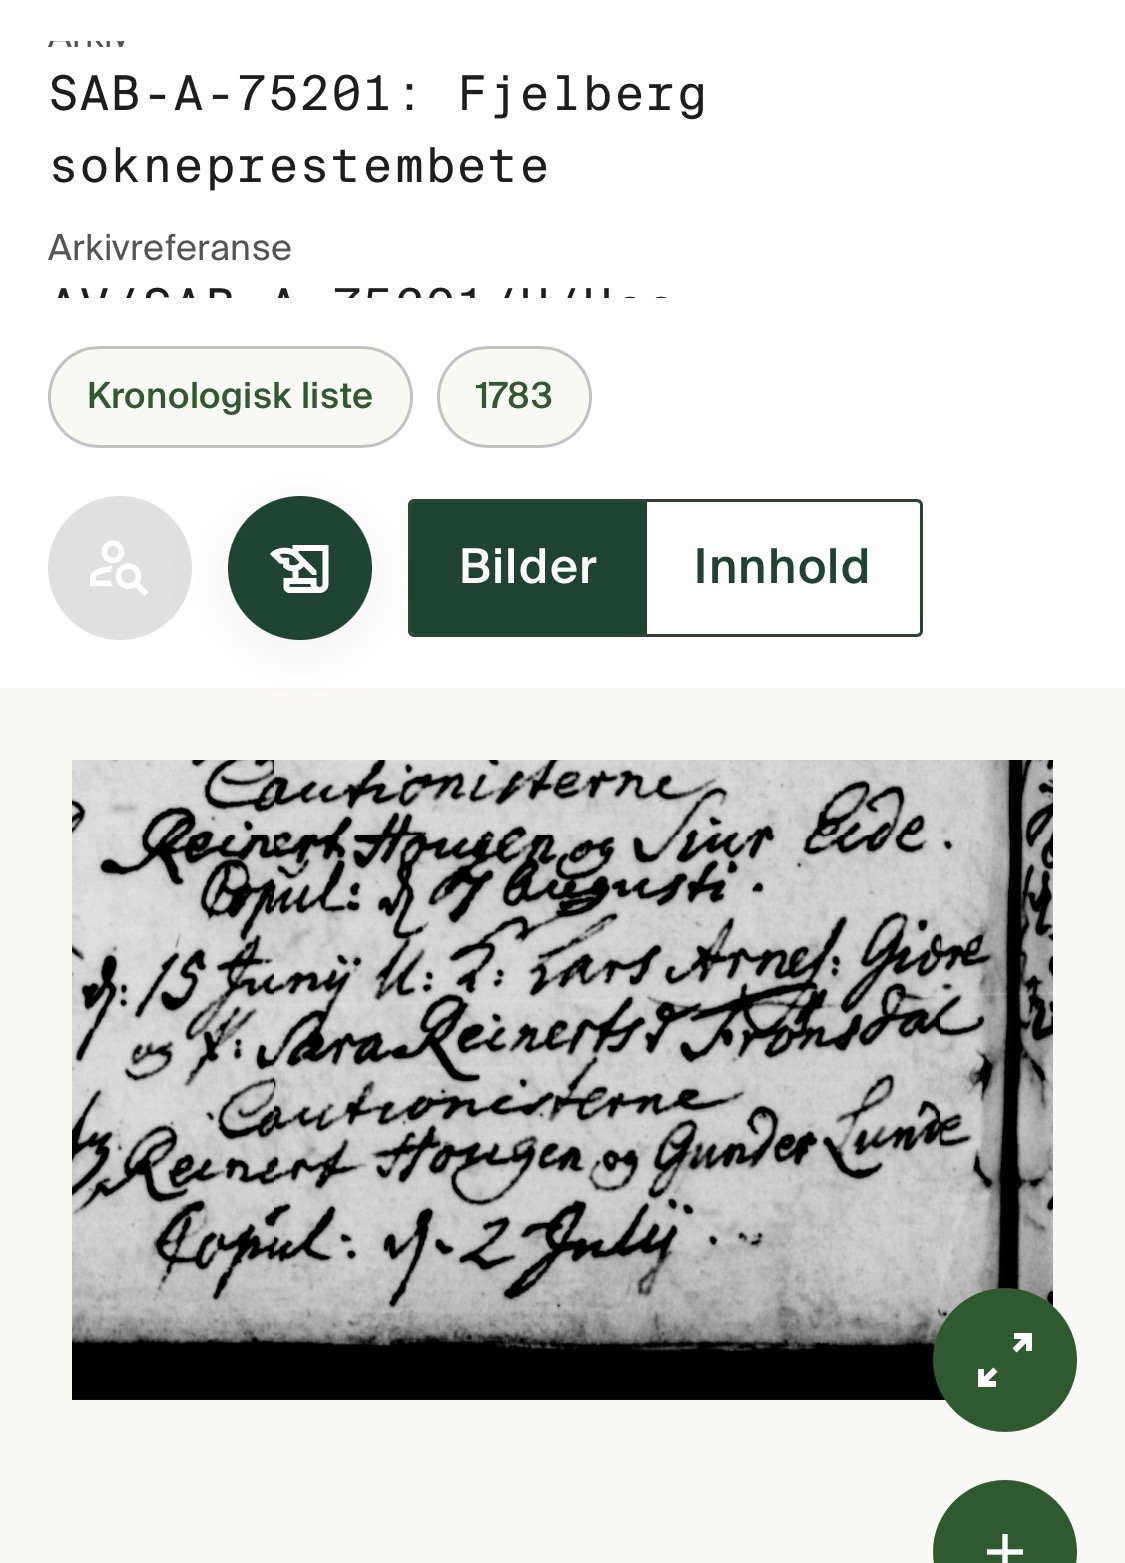 SAB-A-75201: Fjelberg
sokneprestembete
Arkivreferanse
Kronologisk liste
1783
Bilder
Innhold
Cautionisterne
Reinert Hougen og Siur Eide.
Copul: d 7 Augusti.
d: 15 Junij U: K: Lars Arnes: Giöre
og P: Sara Reinertsd Frönsdal
Cautionisterne
Reinert Hougen og Gunder Lunde
Copul: d. 2 Julij